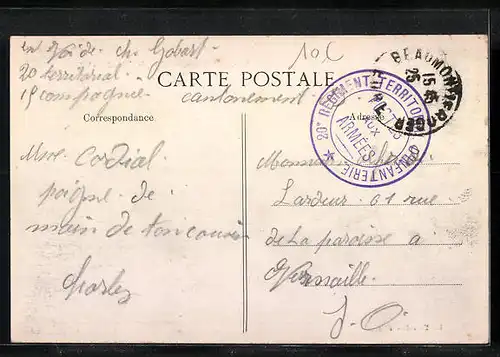 en Gobart
10c
20 territorial
15 compagnie cantonement
CARTE POSTALE
Correspondance
Adresse
20e REGIMENT TERRITORIAL D'INFANTERIE
AUX
ARMÉES
BEAUMONT-LE-ROGER
15
Cordial
poigne de
main de ton cousin
Charles
Monsieur
Lardeur 61 rue
de La paroisse a
Versaille
S. O.